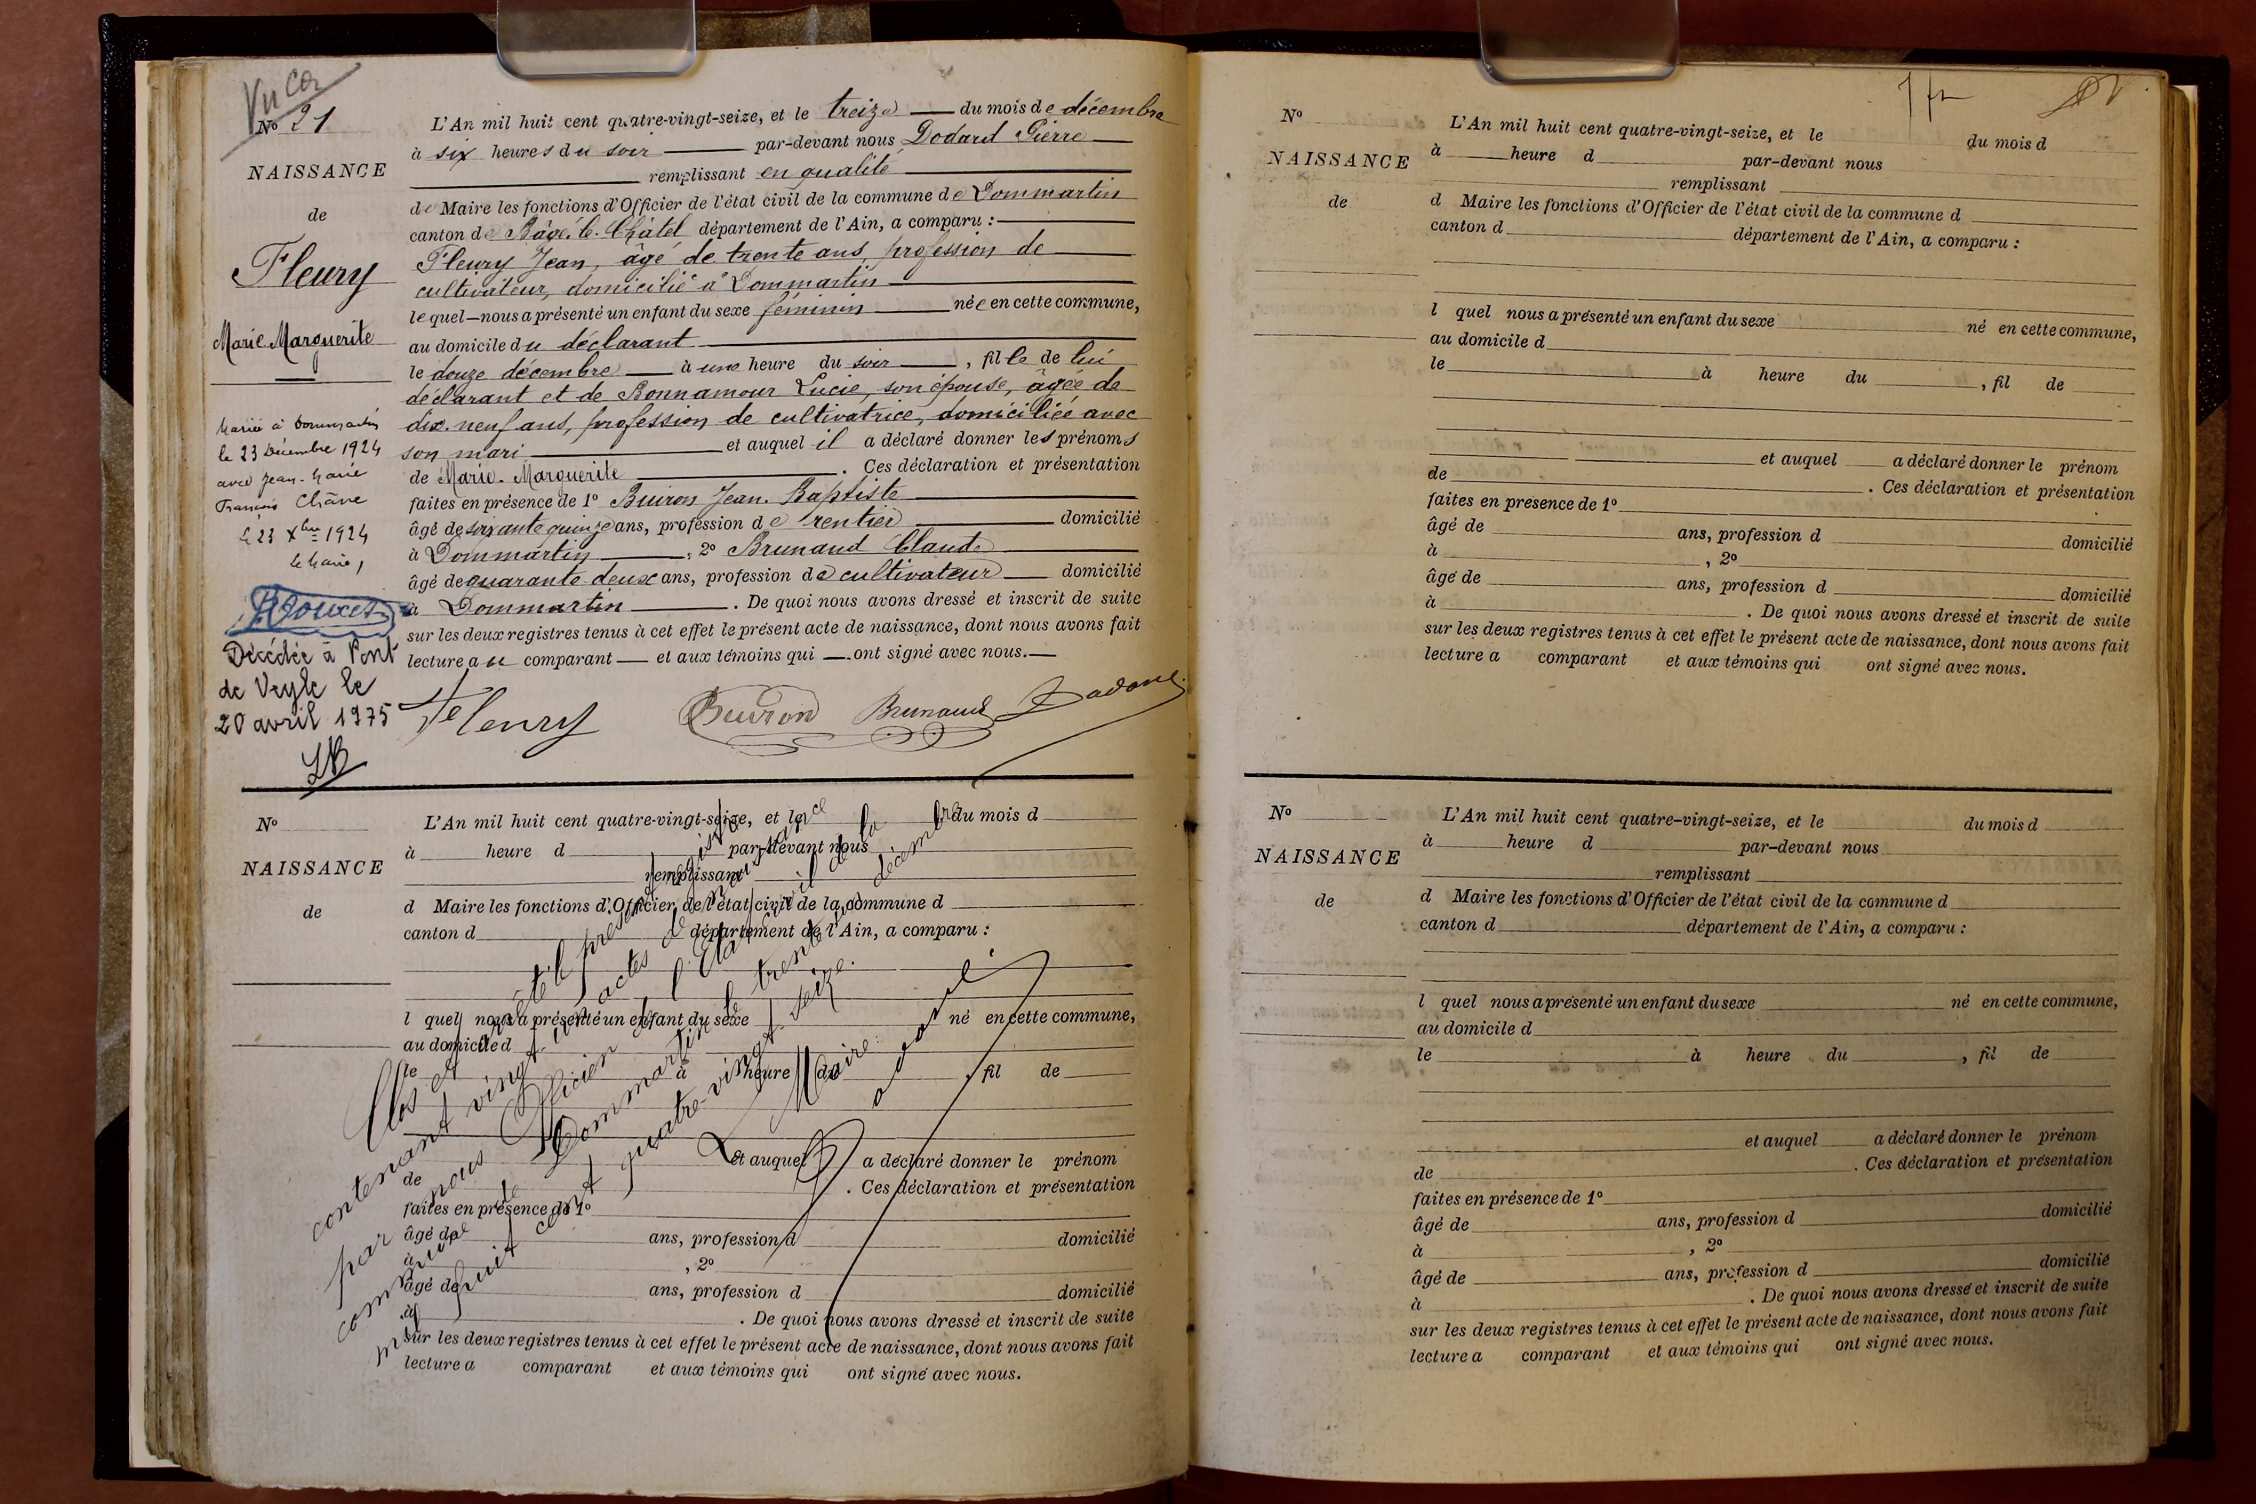 Vu
Nº 21
NAISSANCE
de
Fleury
Marie Marguerite
Mariée à Dommartin
le 23 Décembre 1924
avec Jean-Marie
François Châne
Le 23 Xbre 1924
Le Maire,
Décédée à Pont
de Veyle le
20 avril 1975
L'An mil huit cent quatre-vingt-seize, et le treize du mois de décembre
à six heures du soir par-devant nous Dodard Pierre
remplissant en qualité
de Maire les fonctions d'Officier de l'état civil de la commune de Dommartin
canton de Bâgé-le-Châtel département de l'Ain, a comparu :
Fleury Jean, âgé de trente ans, profession de
cultivateur, domicilié à Dommartin
lequel nous a présenté un enfant du sexe féminin née en cette commune,
au domicile du déclarant
le douze décembre à une heure du soir, fille de lui
déclarant et de Bonnamour Lucie, son épouse, âgée de
dix-neuf ans, profession de cultivatrice, domiciliée avec
son mari et auquel il a déclaré donner les prénoms
de Marie-Marguerite. Ces déclaration et présentation
faites en présence de 1º Buiron Jean-Baptiste
âgé de soixante quinze ans, profession de rentier domicilié
à Dommartin, 2º Brunaud Claude
âgé de quarante-deux ans, profession de cultivateur domicilié
à Dommartin. De quoi nous avons dressé et inscrit de suite
sur les deux registres tenus à cet effet le présent acte de naissance, dont nous avons fait
lecture au comparant et aux témoins qui ont signé avec nous.
Fleury Buiron Brunaud Dodard
Nº
NAISSANCE
de
L'An mil huit cent quatre-vingt-seize, et le du mois d
à heure d par-devant nous
remplissant
d Maire les fonctions d'Officier de l'état civil de la commune d
canton d département de l'Ain, a comparu :
l quel nous a présenté un enfant du sexe né en cette commune,
au domicile d
le à heure du , fil de
et auquel a déclaré donner le prénom
de . Ces déclaration et présentation
faites en présence de 1º
âgé de ans, profession d domicilié
à , 2º
âgé de ans, profession d domicilié
à . De quoi nous avons dressé et inscrit de suite
sur les deux registres tenus à cet effet le présent acte de naissance, dont nous avons fait
lecture a comparant et aux témoins qui ont signé avec nous.
Clos et arrêté le présent registre
contenant vingt-un actes de naissance
par nous Officier de l'Etat civil de la
commune de Dommartin le trente un décembre
mil huit cent quatre-vingt-seize.
Le Maire:
Dodard
Nº
NAISSANCE
de
L'An mil huit cent quatre-vingt-seize, et le du mois d
à heure d par-devant nous
remplissant
d Maire les fonctions d'Officier de l'état civil de la commune d
canton d département de l'Ain, a comparu :
l quel nous a présenté un enfant du sexe né en cette commune,
au domicile d
le à heure du , fil de
et auquel a déclaré donner le prénom
de . Ces déclaration et présentation
faites en présence de 1º
âgé de ans, profession d domicilié
à , 2º
âgé de ans, profession d domicilié
à . De quoi nous avons dressé et inscrit de suite
sur les deux registres tenus à cet effet le présent acte de naissance, dont nous avons fait
lecture a comparant et aux témoins qui ont signé avec nous.
Nº
NAISSANCE
de
L'An mil huit cent quatre-vingt-seize, et le du mois d
à heure d par-devant nous
remplissant
d Maire les fonctions d'Officier de l'état civil de la commune d
canton d département de l'Ain, a comparu :
l quel nous a présenté un enfant du sexe né en cette commune,
au domicile d
le à heure du , fil de
et auquel a déclaré donner le prénom
de . Ces déclaration et présentation
faites en présence de 1º
âgé de ans, profession d domicilié
à , 2º
âgé de ans, profession d domicilié
à . De quoi nous avons dressé et inscrit de suite
sur les deux registres tenus à cet effet le présent acte de naissance, dont nous avons fait
lecture a comparant et aux témoins qui ont signé avec nous.